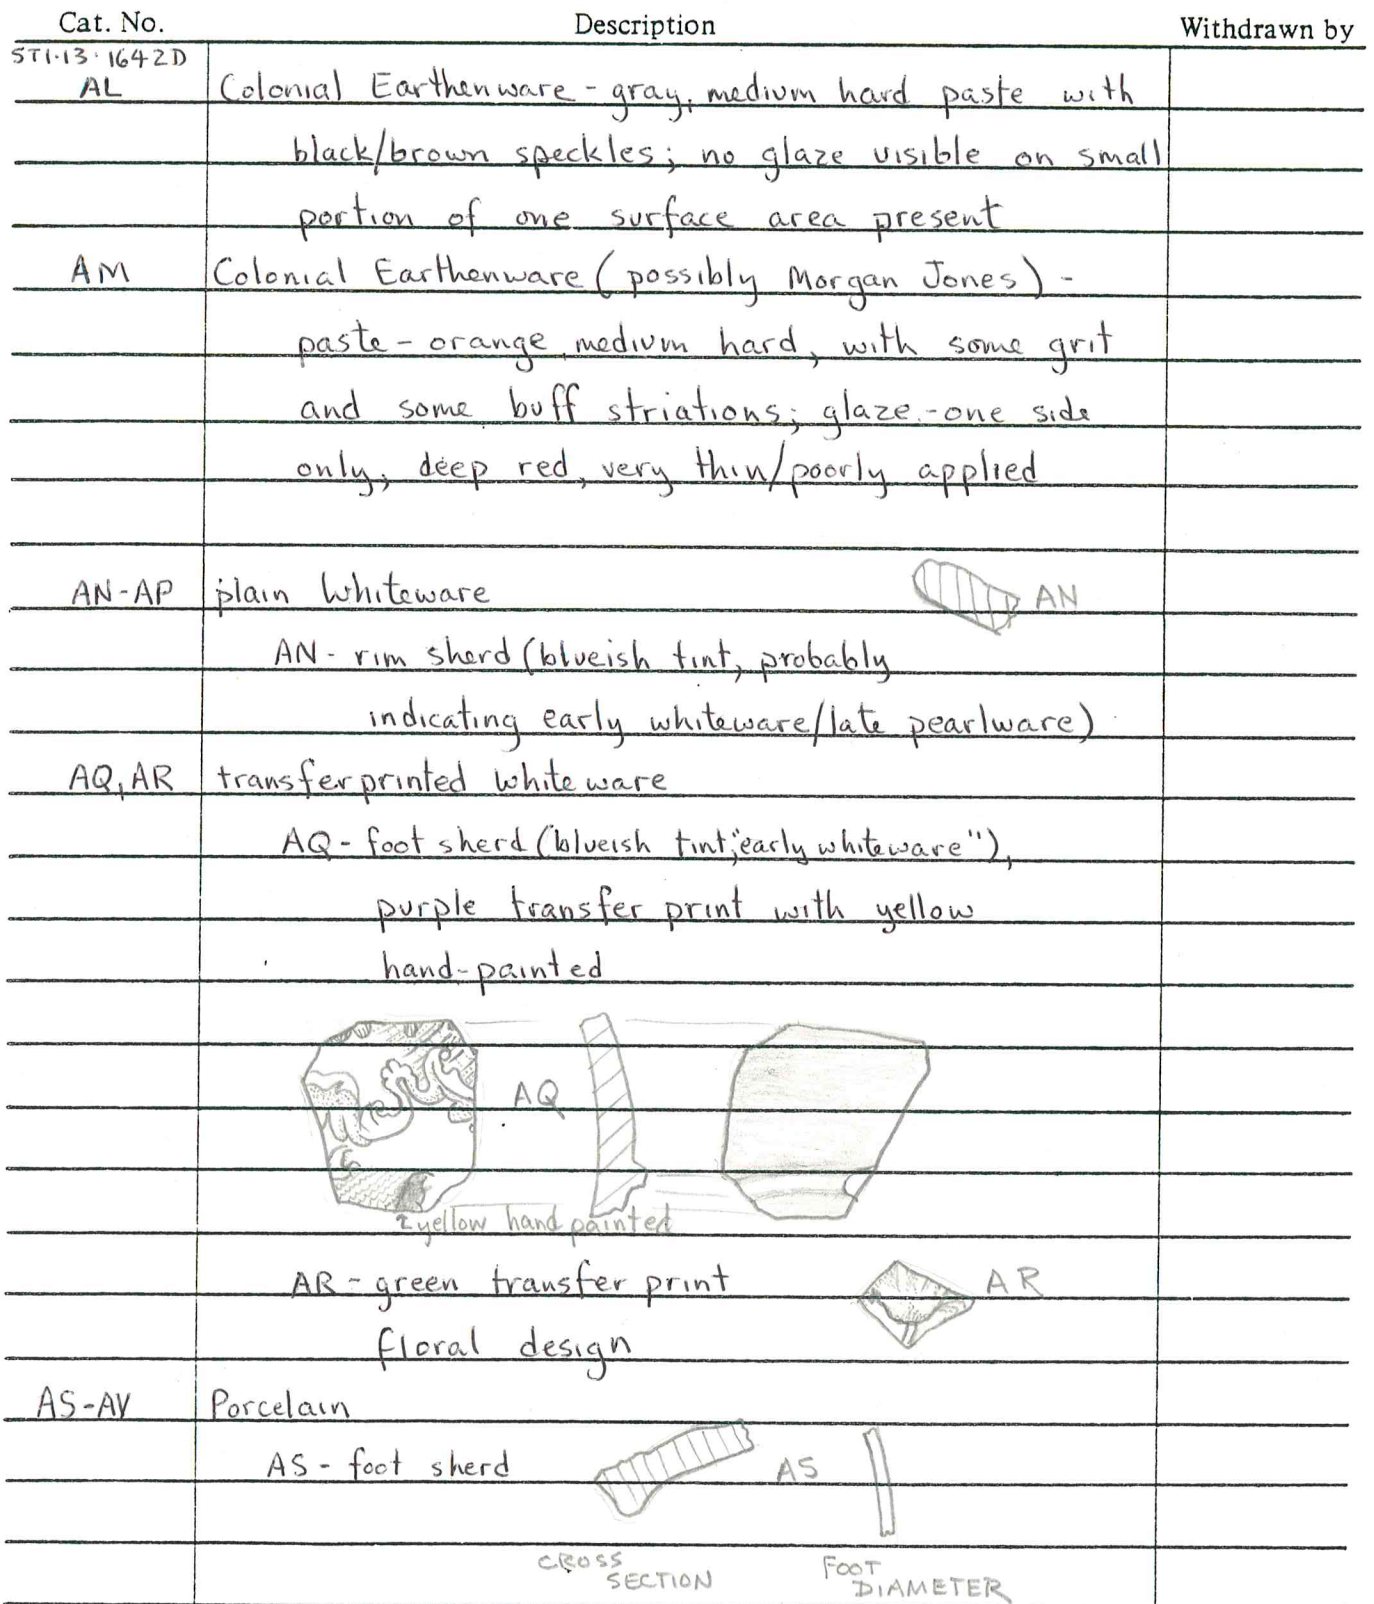 Cat. No. Description Withdrawn by
ST1·13·1642D
AL Colonial Earthenware - gray, medium hard paste with
black/brown speckles; no glaze visible on small
portion of one surface area present
AM Colonial Earthenware (possibly Morgan Jones) -
paste - orange, medium hard, with some grit
and some buff striations; glaze - one side
only; deep red, very thin/poorly applied
AN-AP plain Whiteware AN
AN - rim sherd (blueish tint, probably
indicating early whiteware/late pearlware)
AQ, AR transfer printed whiteware
AQ - foot sherd (blueish tint; "early whiteware"),
purple transfer print with yellow
hand-painted
AQ
yellow hand painted
AR - green transfer print AR
floral design
AS-AV Porcelain
AS - foot sherd AS
CROSS SECTION
FOOT DIAMETER